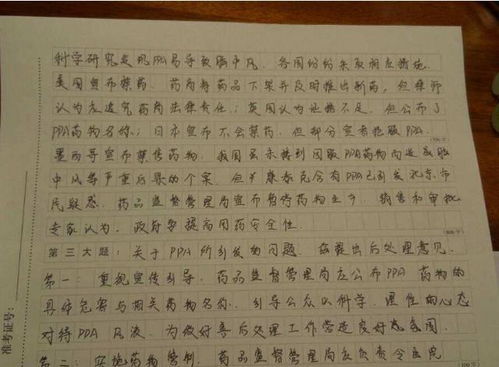 科学研究发现PPA易导致脑中风. 各国纷纷采取相应措施.
美国宣布禁药. 药商将药品下架并及时推出新药. 但律师
认为应追究药商法律责任; 英国认为证据不足. 但公布了
PPA药物名称; 日本宣布不会禁药. 但部分宣布抵服PPA.
墨西哥宣布禁售药物. 我国虽未接到因服PPA药物而造成脑
中风等严重后果的个案. 但天康泰克含有PPA已引发北京市
民疑惑. 药品监督管理局宣布暂停药物生产. 销售和审批
专家认为. 政府要提高用药安全性.
第三大题: 关于PPA所引发的问题. 兹提出后处理意见.
第一: 重视宣传引导. 药品监督管理局应公布PPA药物的
具体危害与相关药物名称. 引导公众以科学. 理性的心态
对待PPA风波. 为做好善后处理工作营造良好氛围.
第二: 实施药物管制. 药品监督管理局应负责令医院
准考证号: